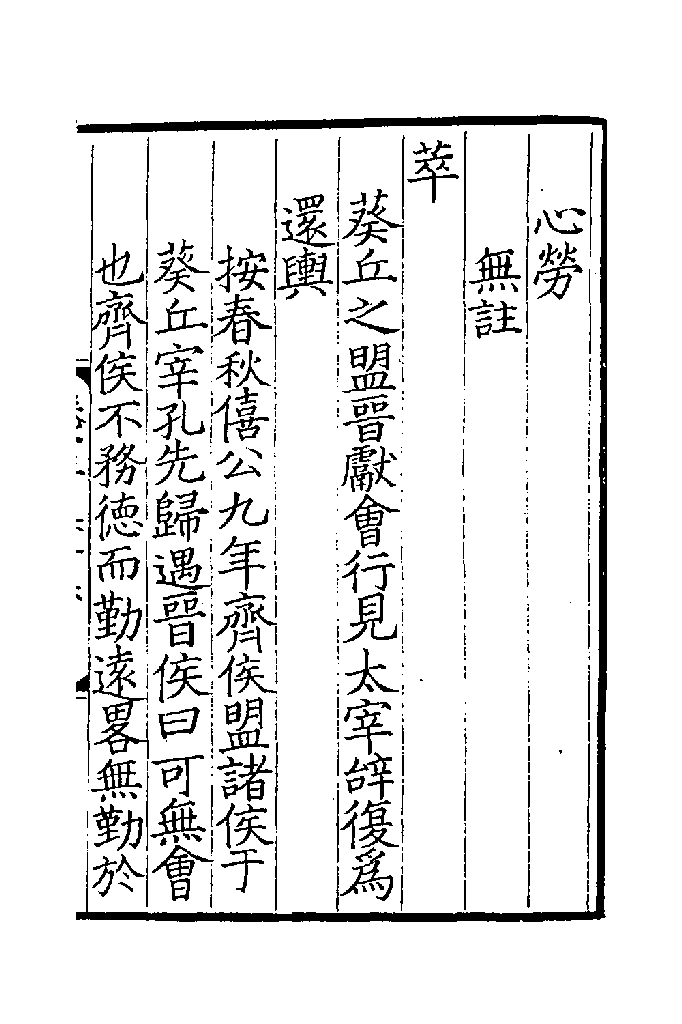 心勞
無註
萃
葵丘之盟晉獻會行見太宰辝復爲
還輿
按春秋僖公九年齊侯盟諸侯于
葵丘宰孔先歸遇晉侯曰可無會
也齊侯不務徳而勤逺畧無勤於